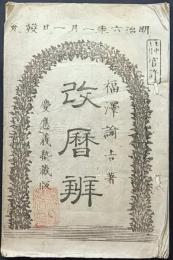 明治六年一月一日發兌
官許
福澤諭吉著
改曆辨
慶應義塾藏版